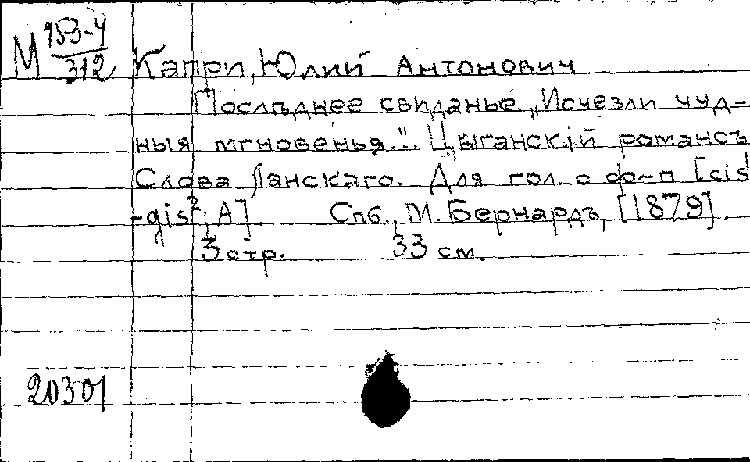 М 953-4/312
Капри, Юлий Антонович
Послѣднее свиданье „Исчезли чуд-
ныя мгновенья." Цыганскій романсъ
Слова Ланскаго. Для гол. с ф-п [cis¹
-gis², A]. Спб., М. Бернардъ, [1879].
3 стр. 33 см.
20301